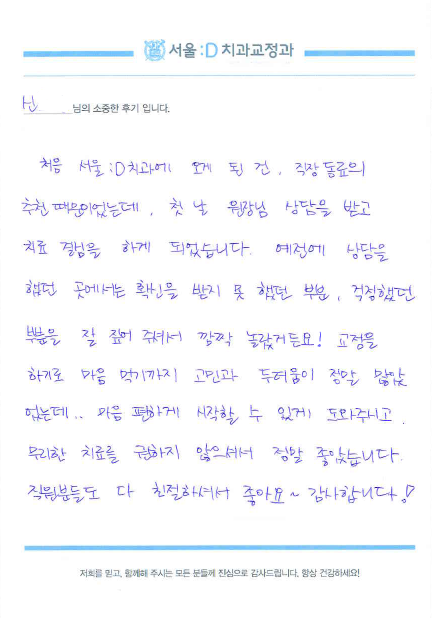 서울:D 치과교정과
신 님의 소중한 후기 입니다.
처음 서울:D치과에 오게 된 건, 직장동료의
추천 때문이었는데, 첫 날 원장님 상담을 받고
치료 결심을 하게 되었습니다. 예전에 상담을
했던 곳에서는 확신을 받지 못 했던 부분, 걱정했던
부분을 잘 짚어 주셔서 깜짝 놀랐거든요! 교정을
하기로 마음 먹기까지 고민과 두려움이 정말 많았
었는데.. 마음 편하게 시작할 수 있게 도와주시고.
무리한 치료를 권하지 않으셔서 정말 좋았습니다.
직원분들도 다 친절하셔서 좋아요~ 감사합니다!
저희를 믿고, 함께해 주시는 모든 분들께 진심으로 감사드립니다. 항상 건강하세요!